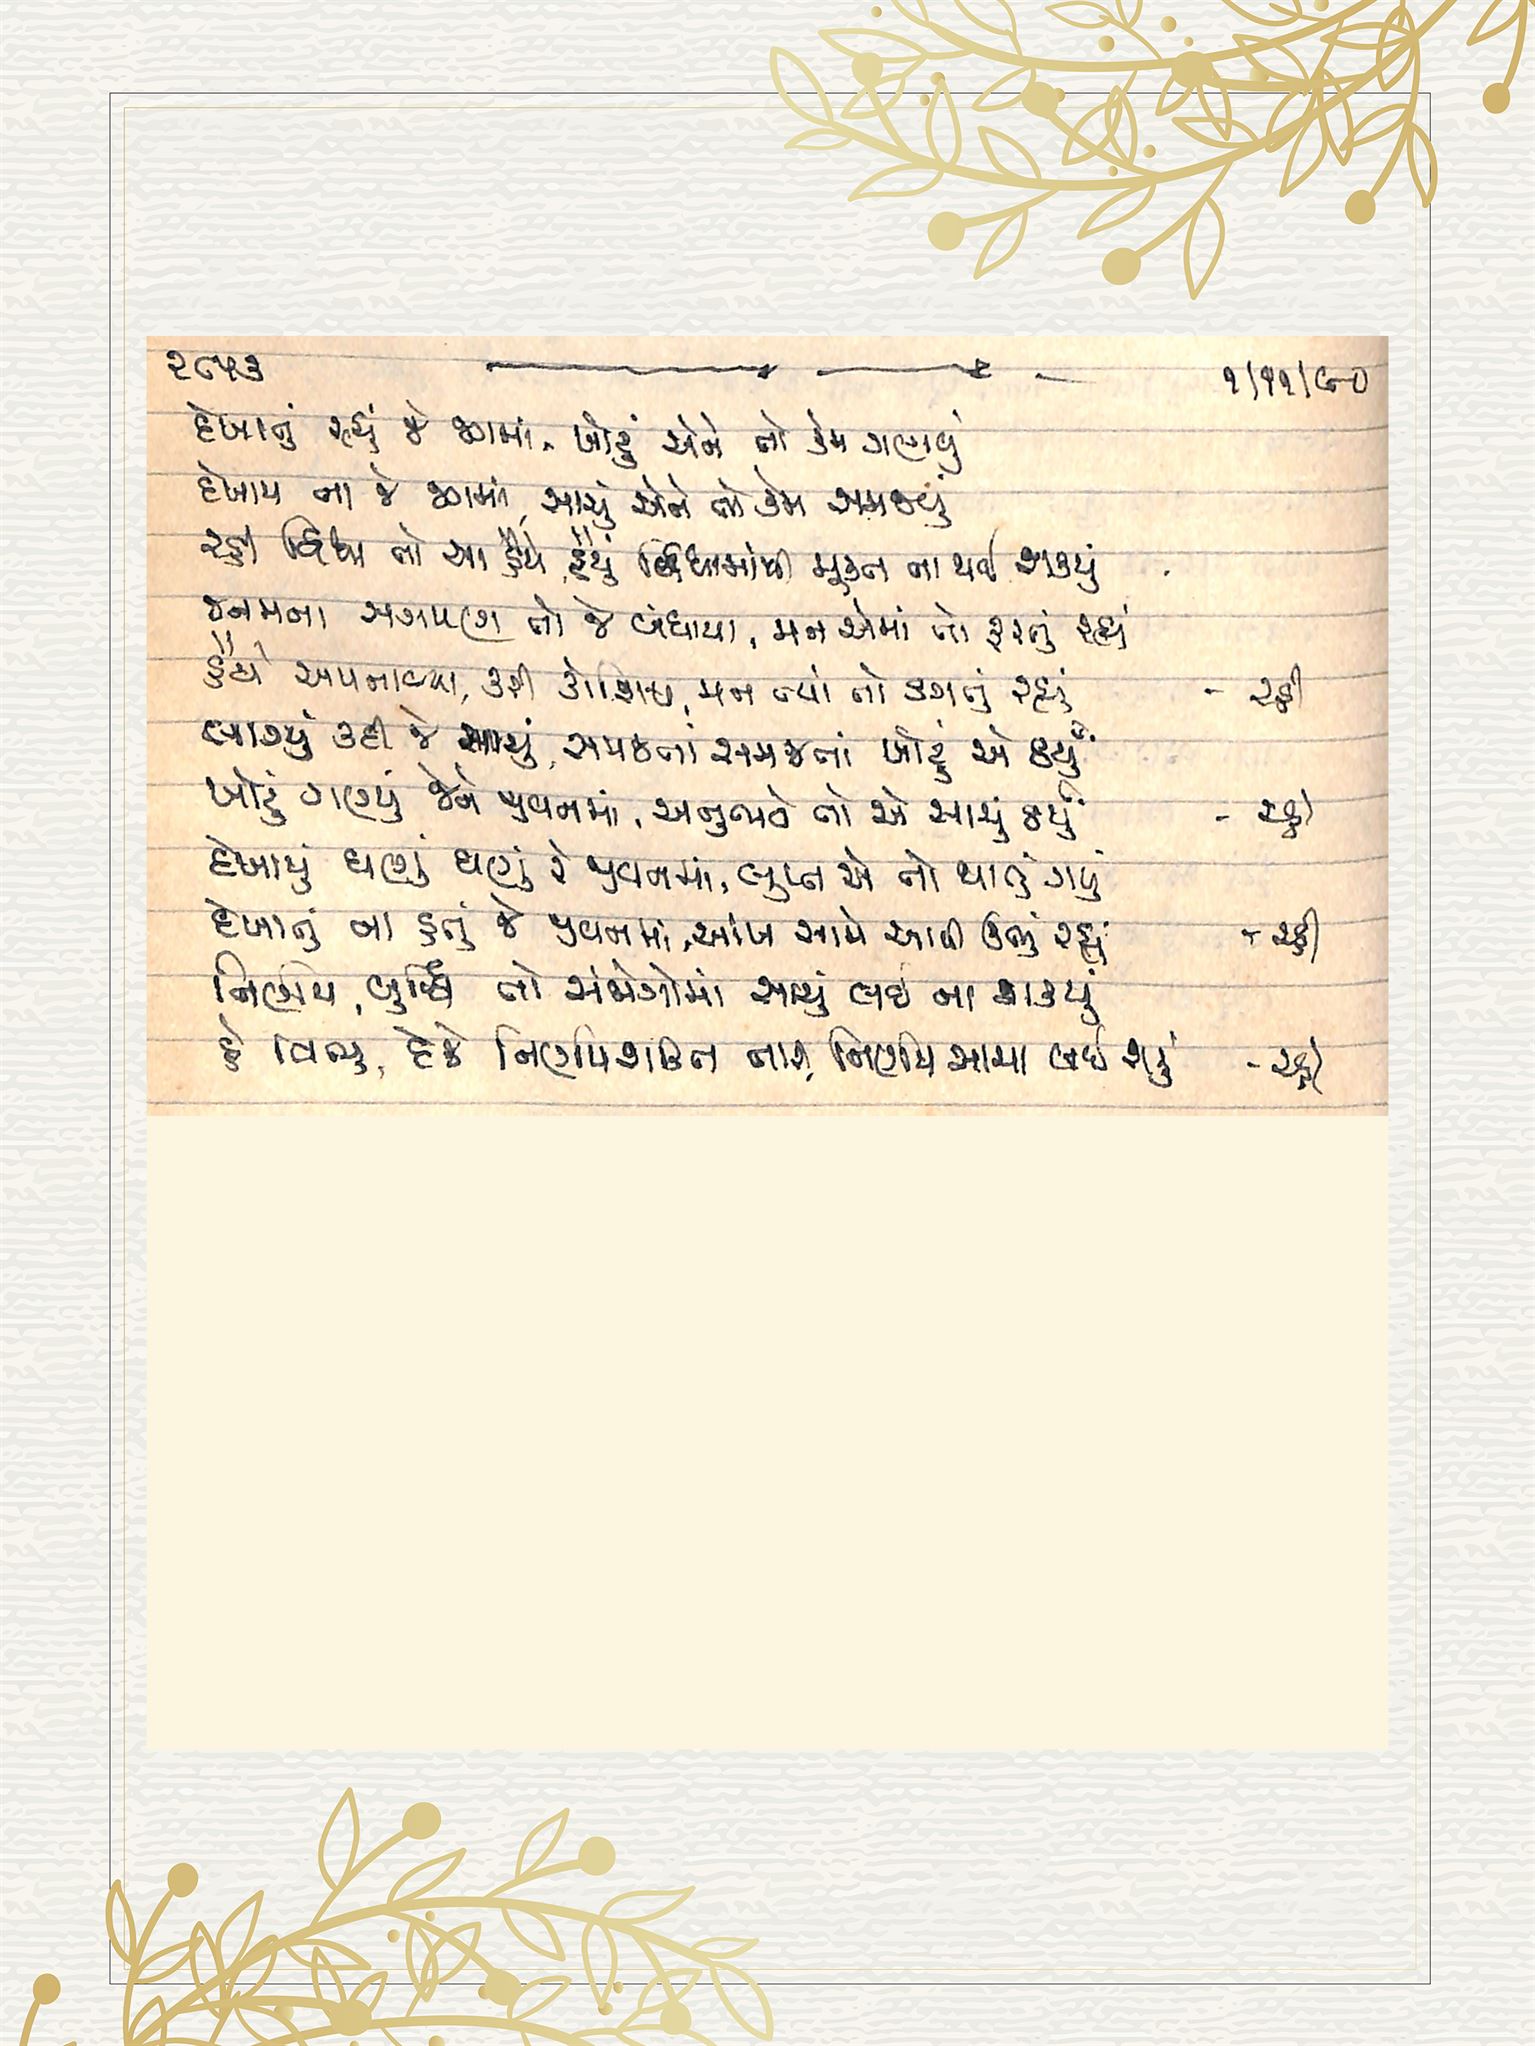 ૨૮૫૩ ૧/૧૧/૯૦
દેખાતું રહ્યું જે જગમાં, ખોટું એને તો કેમ ગણવું
દેખાય ના જે જગમાં, સાચું એને તો કેમ સમજવું
રહી દ્વિધા તો આ હૈયે, હૈયું દ્વિધામાંથી મુક્ત ના થઈ શક્યું
જનમના સગપણ તો જે બંધાયા, મન એમાં તો ફરતું રહ્યું
હૈયે અપનાવવા, કરી કોશિશ, મન ત્યાં તો ફગતું રહ્યું - રહી
લાગ્યું કદી જે સાચું, સમજનાં સમજતાં ખોટું એ ઠર્યું
ખોટું ગણ્યું જેને જીવનમાં, અનુભવે તો એ સાચું ઠર્યું - રહી
દેખાયું ઘણું ઘણું રે જીવનમાં, લુપ્ત એ તો થાતું ગયું
દેખાતું ના હતું જે જીવનમાં, આંખ સામે આવી ઊભું રહ્યું - રહી
નિર્ણય, બુદ્ધિ તો સંજોગોમાં સાચું લઈ ના શક્યું
હે વિભુ, દેજે નિર્ણયશક્તિ તારી, નિર્ણય સાચા લઈ શકું - રહી